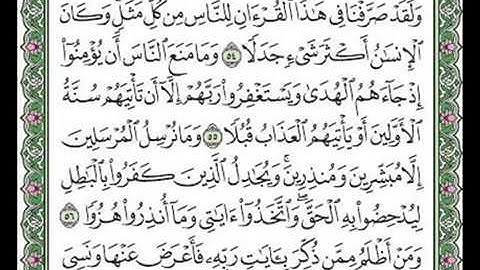 وَلَقَدْ صَرَّفْنَا فِي هَٰذَا ٱلْقُرْءَانِ لِلنَّاسِ مِن كُلِّ مَثَلٍۚ وَكَانَ
ٱلْإِنسَٰنُ أَكْثَرَ شَىْءٍ جَدَلًا ٥٤ وَمَا مَنَعَ ٱلنَّاسَ أَن يُؤْمِنُوٓا۟
إِذْ جَآءَهُمُ ٱلْهُدَىٰ وَيَسْتَغْفِرُوا۟ رَبَّهُمْ إِلَّآ أَن تَأْتِيَهُمْ سُنَّةُ
ٱلْأَوَّلِينَ أَوْ يَأْتِيَهُمُ ٱلْعَذَابُ قُبُلًا ٥٥ وَمَا نُرْسِلُ ٱلْمُرْسَلِينَ
إِلَّا مُبَشِّرِينَ وَمُنذِرِينَۚ وَيُجَٰدِلُ ٱلَّذِينَ كَفَرُوا۟ بِٱلْبَٰطِلِ
لِيُدْحِضُوا۟ بِهِ ٱلْحَقَّۖ وَٱتَّخَذُوٓا۟ ءَايَٰتِى وَمَآ أُنذِرُوا۟ هُزُوًا ٥٦
وَمَنْ أَظْلَمُ مِمَّن ذُكِّرَ بِـَٔايَٰتِ رَبِّهِۦ فَأَعْرَضَ عَنْهَا وَنَسِىَ